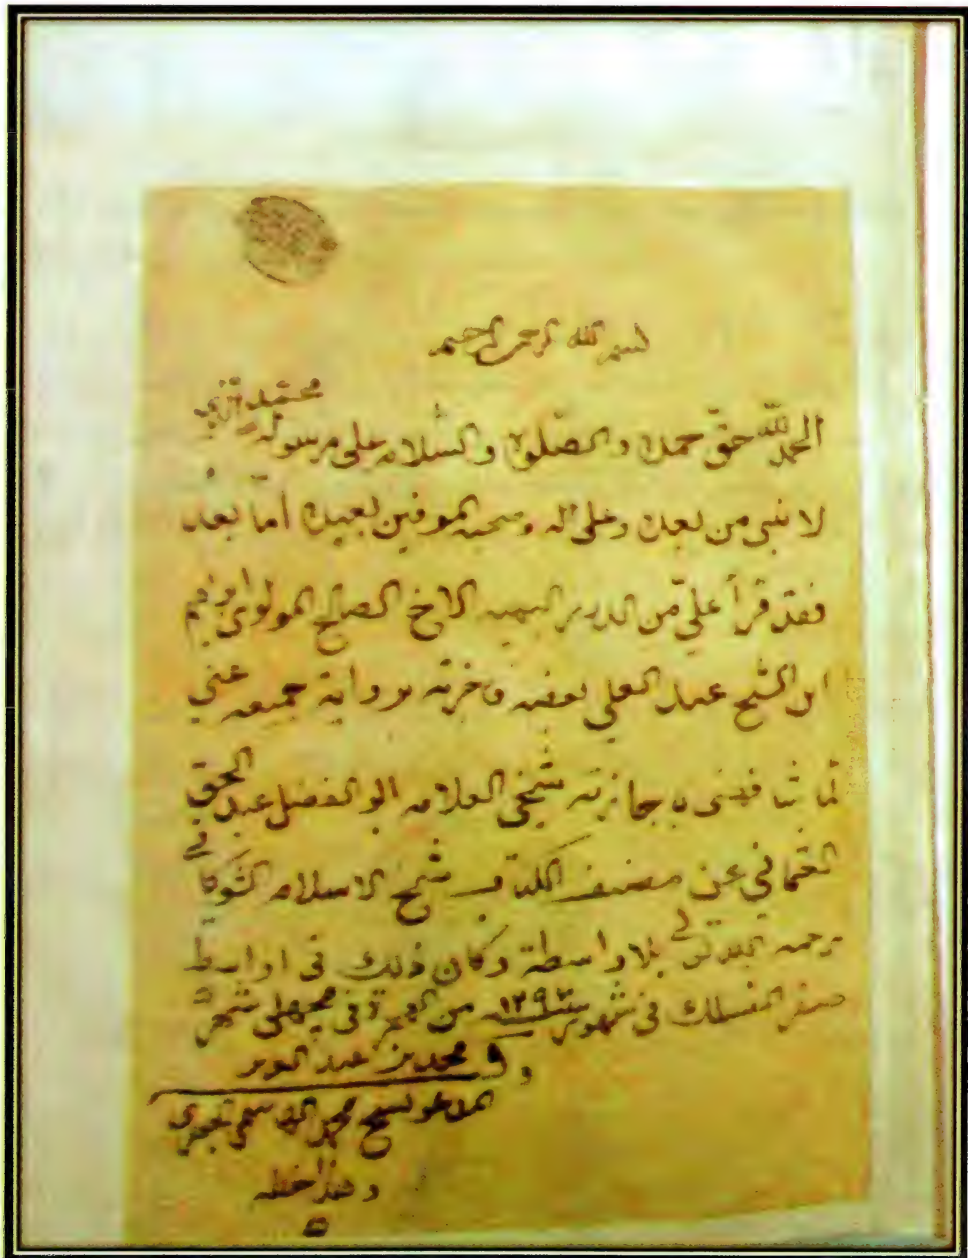 بسم الله الرحمن الرحيم
الحمد لله حق حمده والصلوة والسلام على رسوله محمد الذي
لا نبي من بعده وعلى اله وصحبه الموفين بعهده أما بعد
فقد قرأ عليّ من الدرر البهية الاخ الصالح المولوى ابراهيم
ابن الشيخ عبد العلي بعضه فاجزته برواية جميعه عني
لما شافهنى باجازته شيخي العلامه ابو الفضل عبد الحق
العثماني عن مصنف الكتاب شيخ الاسلام الشوكاني
رحمه الله تعالى بلا واسطة وكان ذلك فى اواسط
صفر المنسلك فى شهور سنة ١٢٩٢ من الهجرة فى مجهلى شهر
محمد بن عبد العزيز
المدعو بشيخ محمد الهاشمي الجعفري
وهذا خطه